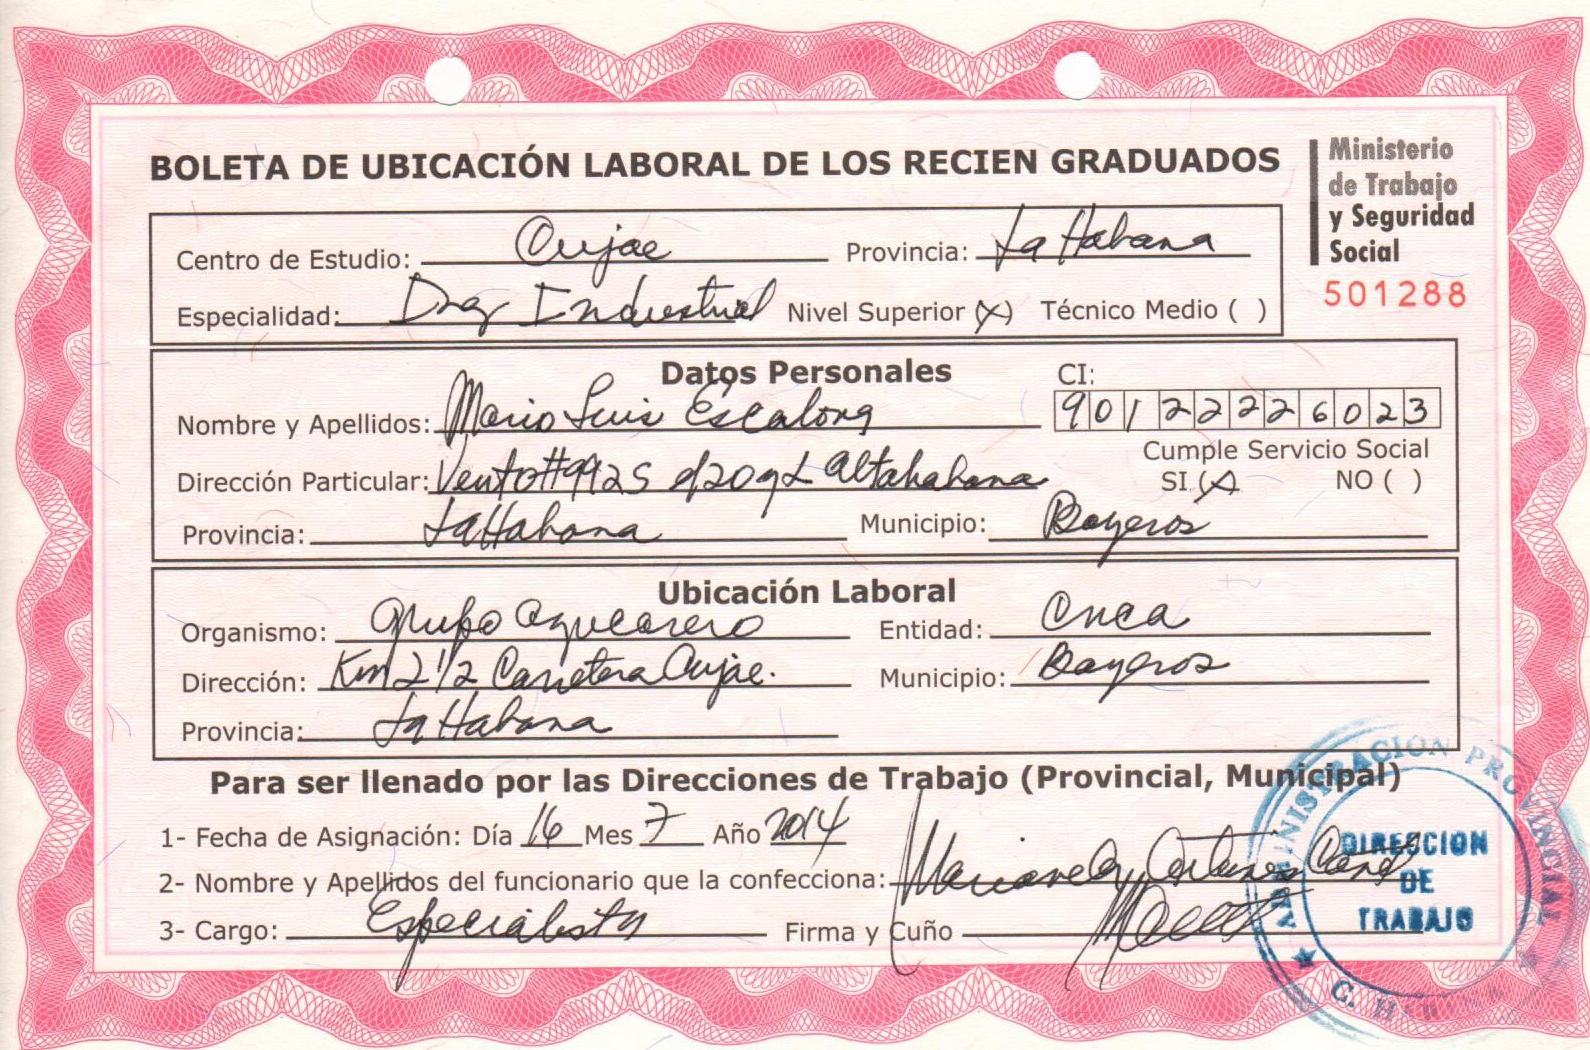 BOLETA DE UBICACIÓN LABORAL DE LOS RECIEN GRADUADOS
Ministerio
de Trabajo
y Seguridad
Social
501288
Centro de Estudio: Cujae Provincia: La Habana
Especialidad: Ing Industrial Nivel Superior (X) Técnico Medio ( )
Datos Personales
CI: 90122226023
Nombre y Apellidos: Mario Luis Escalona
Cumple Servicio Social
SI (X) NO ( )
Dirección Particular: Vento #9925 Altahabana
Provincia: La Habana Municipio: Boyeros
Ubicación Laboral
Organismo: Grupo Azucarero Entidad: Cnca
Dirección: Km 2 1/2 Carretera Cujae. Municipio: Boyeros
Provincia: La Habana
Para ser llenado por las Direcciones de Trabajo (Provincial, Municipal)
1- Fecha de Asignación: Día 16 Mes 7 Año 2014
2- Nombre y Apellidos del funcionario que la confecciona:
3- Cargo: Especialista Firma y Cuño
ADMINISTRACION PROVINCIAL
DIRECCION
DE
TRABAJO